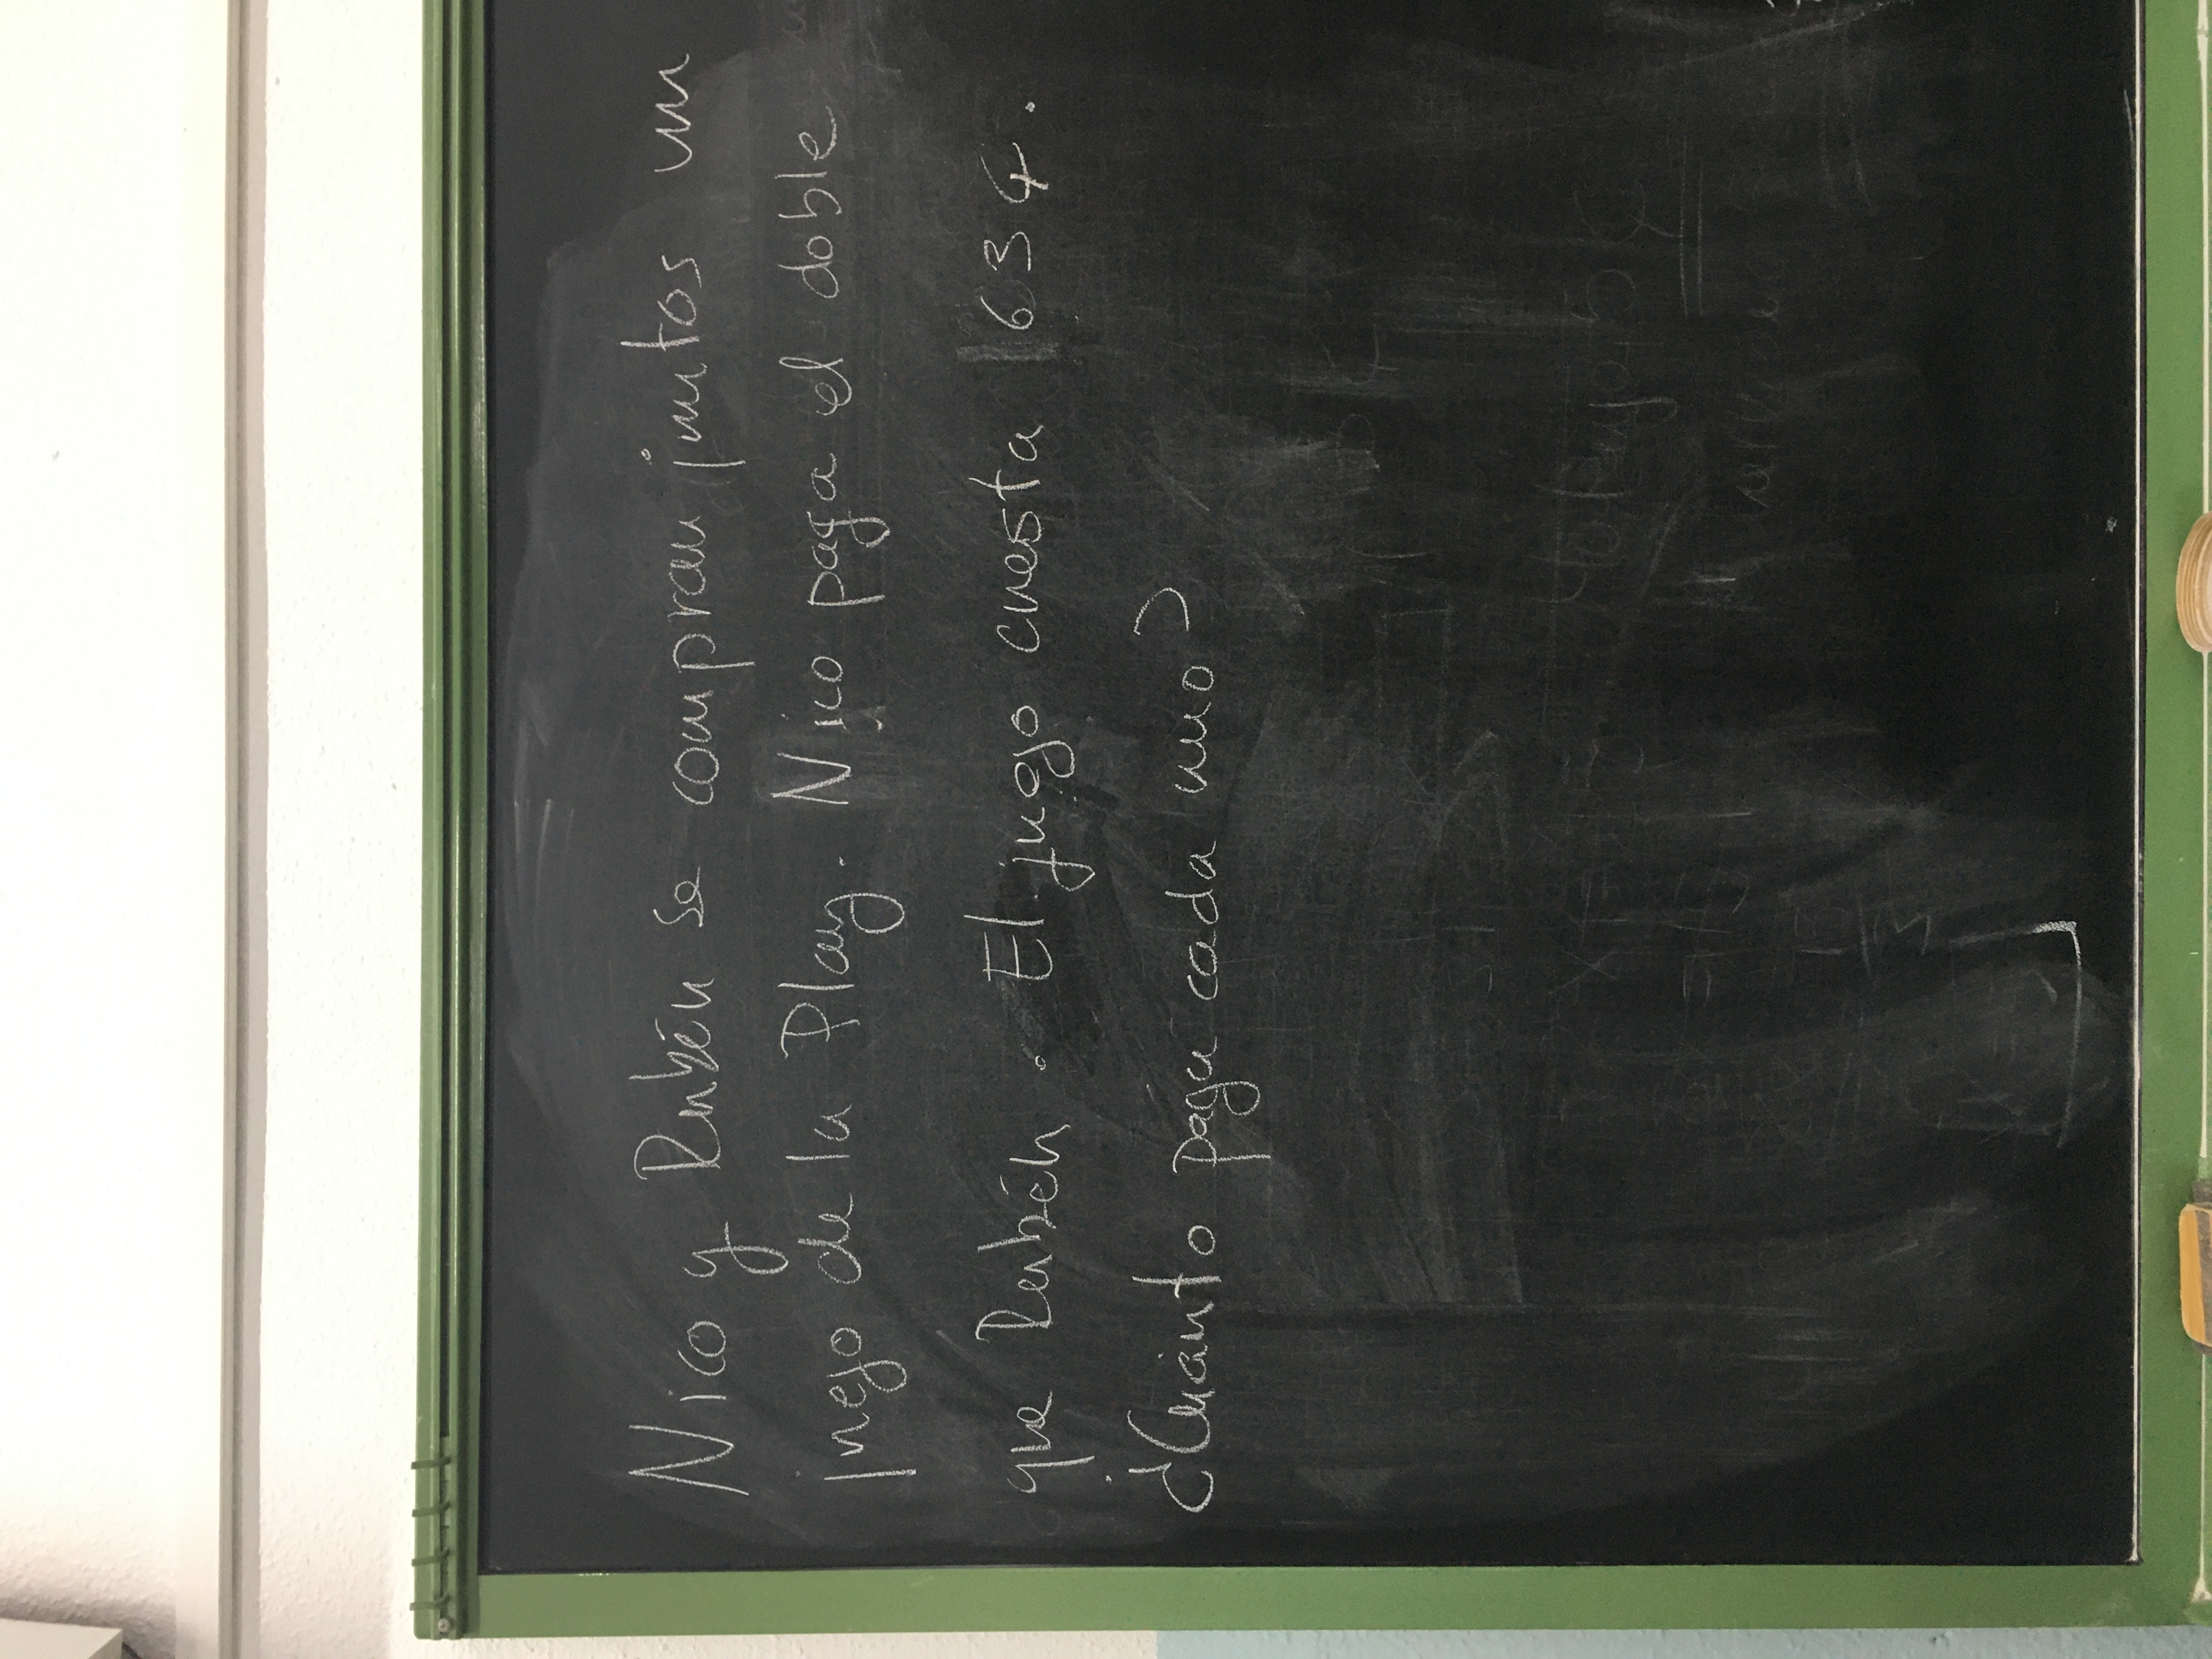 Nico y Rubén se compran juntos un
juego de la Play. Nico paga el doble
que Rubén. El juego cuesta 63 €.
¿Cuánto paga cada uno?